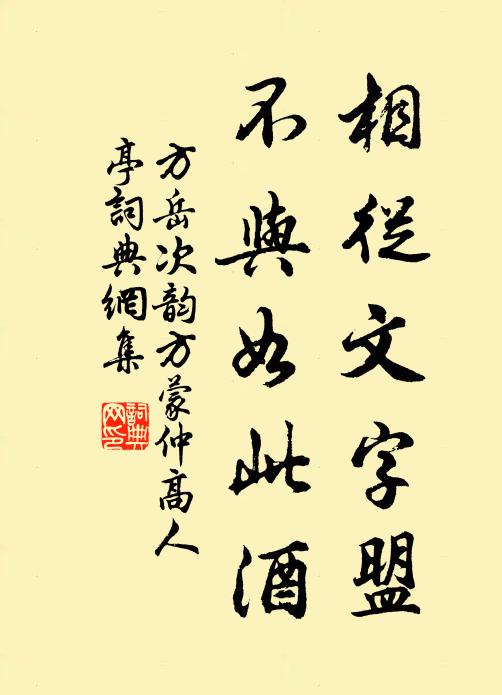 相從文字盟
不與如此酒
方岳次韵方蒙仲高人
亭詞典網集
詞典
网印